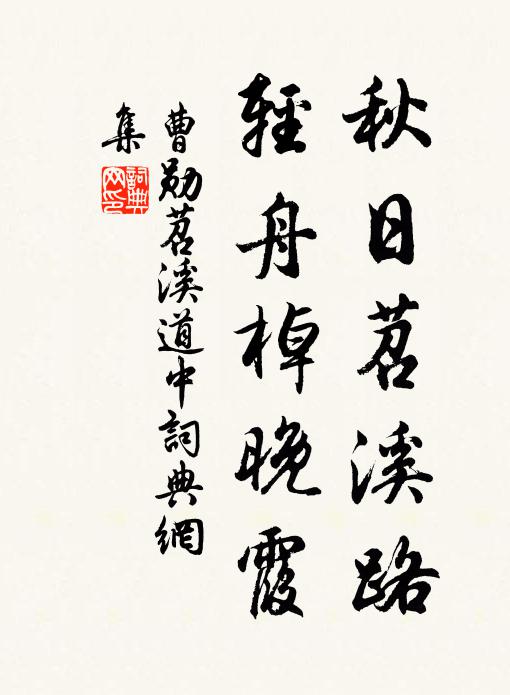 秋日苕溪路
輕舟棹晚霞
曹勛苕溪道中詞典網
集
詞典
网印